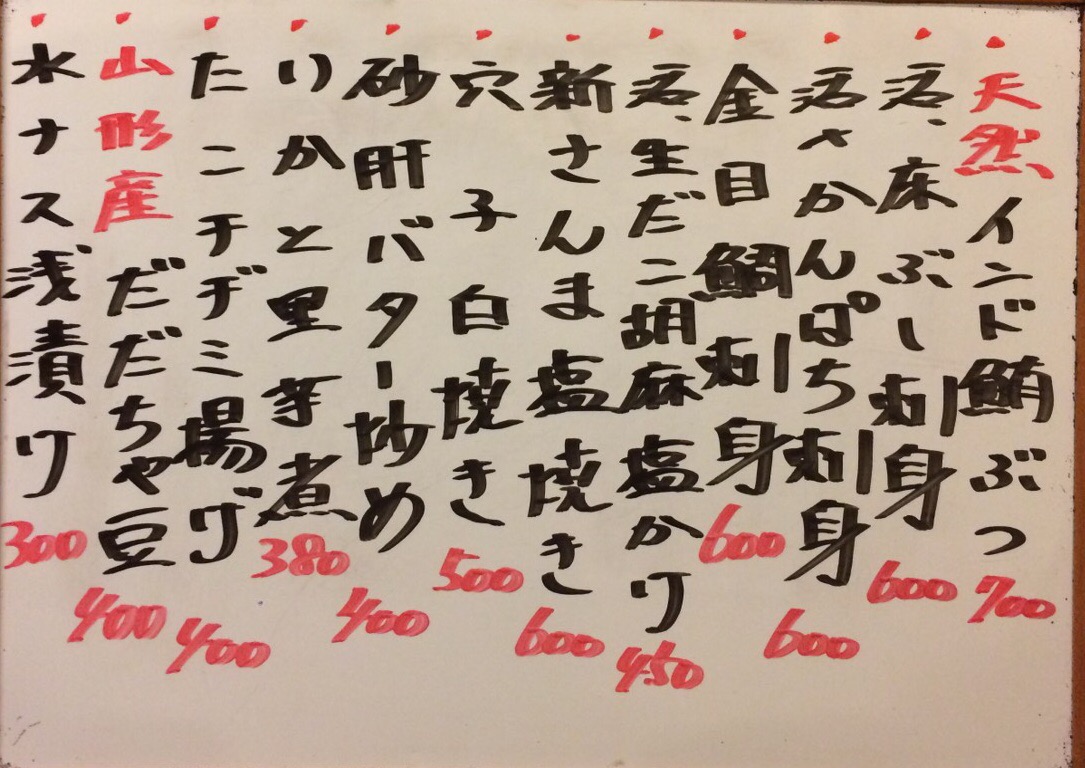 天然インド鮪ぶつ 700
活、床ぶし刺身 600
活〆かんぱち刺身 600
金目鯛刺身 600
活、生だこ胡麻塩かけ 450
新さんま塩焼き 600
穴子白焼き 500
砂肝バター炒め 400
いかと里芋煮 380
たこチヂミ揚げ 400
山形産だだちゃ豆 400
水ナス浅漬け 300